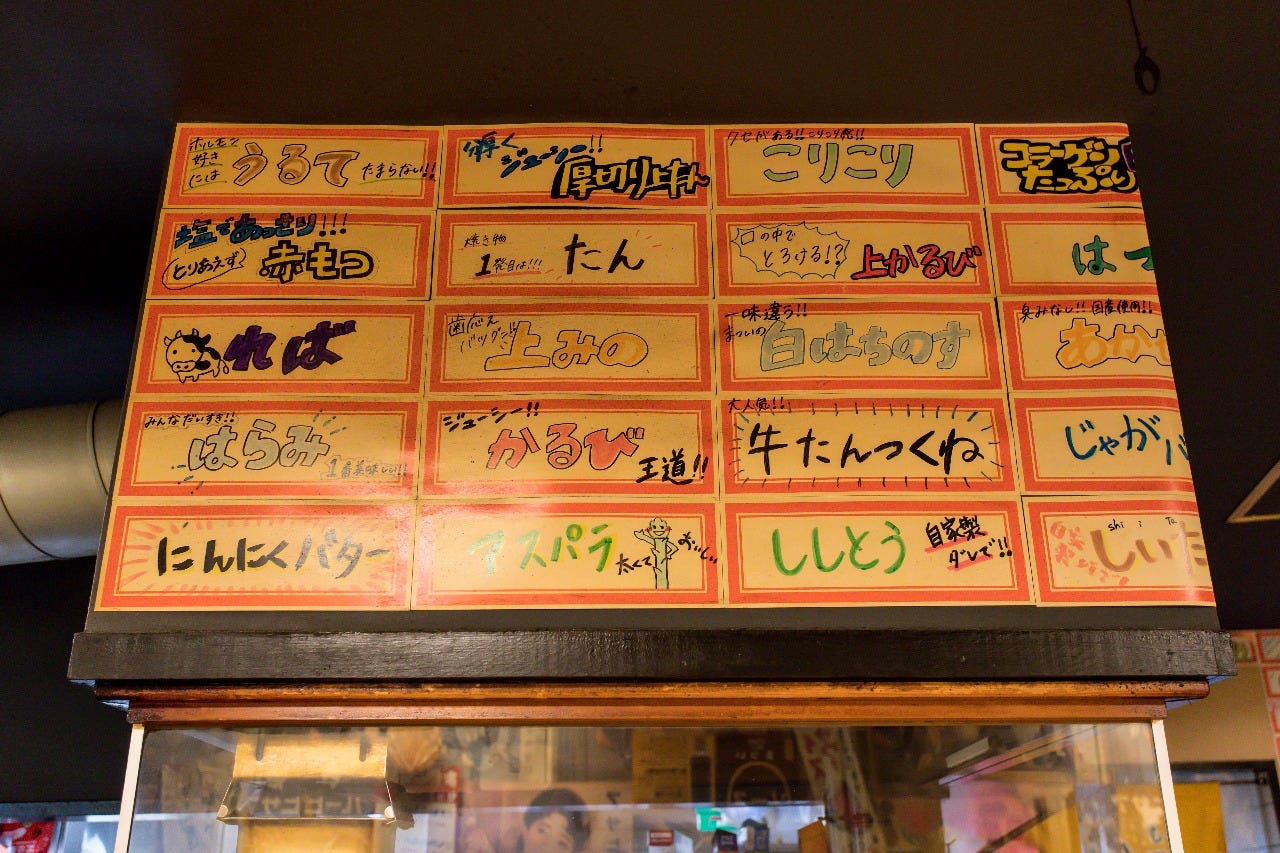 ホルモン
好き
には
うるて
たまらない!!
弾く
ジューシー!!
厚切り上ホルモン
クセがある!!こりこり感!!
こりこり
コラーゲン
たっぷり
塩であっさり!!!
とりあえず
赤もつ
焼き物
1発目は!!!
たん
口の中で
とろける!?
上かるび
はつ
れば
歯応え
バツグン!!
上みの
一味違う!!
まついの
白はちのす
臭みなし!!国産使用!!
あかせ
みんなだいすき!!
はらみ
1番美味しい!!
ジューシー!!
かるび
王道!!
大人気!!
牛たんつくね
じゃがバ
にんにくバター
アスパラ
太くて
おいしい
ししとう
自家製
ダレで!!
shi i Ta
しいた